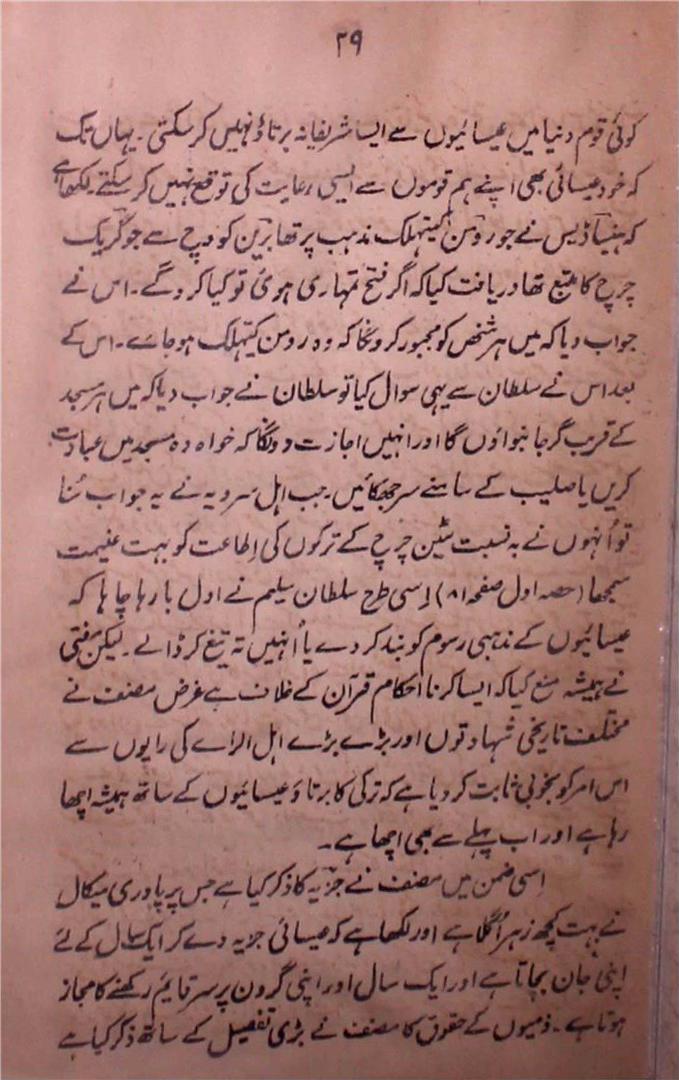 ۲۹
کوئی قوم دنیا میں عیسائیوں سے ایسا شریفانہ برتاؤ نہیں کرسکتی۔ یہاں تک
کہ خود عیسائی بھی اپنے ہم قوموں سے ایسی رعایت کی توقع نہیں کرسکتے۔ لکھا ہے
کہ ہنیاڈیس نے جو رومن کیتہلک مذہب پر تھا برین کو وچ سے جو گریک
چرچ کا متبع تھا دریافت کیا کہ اگر فتح تمہاری ہوئی تو کیا کروگے۔ اس نے
جواب دیا کہ میں ہر شخص کو مجبور کرونگا کہ وہ رومن کیتہلک ہوجائے۔ اس کے
بعد اس نے سلطان سے یہی سوال کیا تو سلطان نے جواب دیا کہ میں ہر مسجد
کے قریب گرجا بنواؤں گا اور انہیں اجازت دونگا کہ خواہ وہ مسجد میں عبادت
کریں یا صلیب کے سامنے سر جھکائیں۔ جب اہل سرویہ نے یہ جواب سُنا
تو اُنہوں نے بہ نسبت لٹین چرچ کے ترکوں کی اِطاعت کو بہت غنیمت
سمجھا (حصہ اول صفحہ ۸۱) اِسی طرح سلطان سلیم نے اول بارہا چاہا کہ
عیسائیوں کے مذہبی رسوم کو بند کردے یا اُنہیں تہ تیغ کر ڈالے۔ لیکن مفتی
نے ہمیشہ منع کیا کہ ایسا کرنا احکام قرآن کے خلاف ہے غرض مصنف نے
مختلف تاریخی شہادتوں اور بڑے بڑے اہل الراے کی رایوں سے
اس امر کو بخوبی ثابت کردیا ہے کہ ترکی کا برتاؤ عیسائیوں کے ساتھ ہمیشہ اچھا
رہا ہے اور اب پہلے سے بھی اچھا ہے۔
اِسی ضمن میں مصنف نے جزیہ کا ذکر کیا ہے جس پر پادری میکال
نے بہت کچھ زہر اُگلا ہے اور لکھا ہے کہ عیسائی جزیہ دے کر ایک سال کے لئے
اپنی جان بچاتا ہے اور ایک سال اور اپنی گردن پر سر قایم رکھنے کا مجاز
ہوتا ہے۔ ذمیوں کے حقوق کا مصنف نے بڑی تفصیل کے ساتھ ذکر کیا ہے